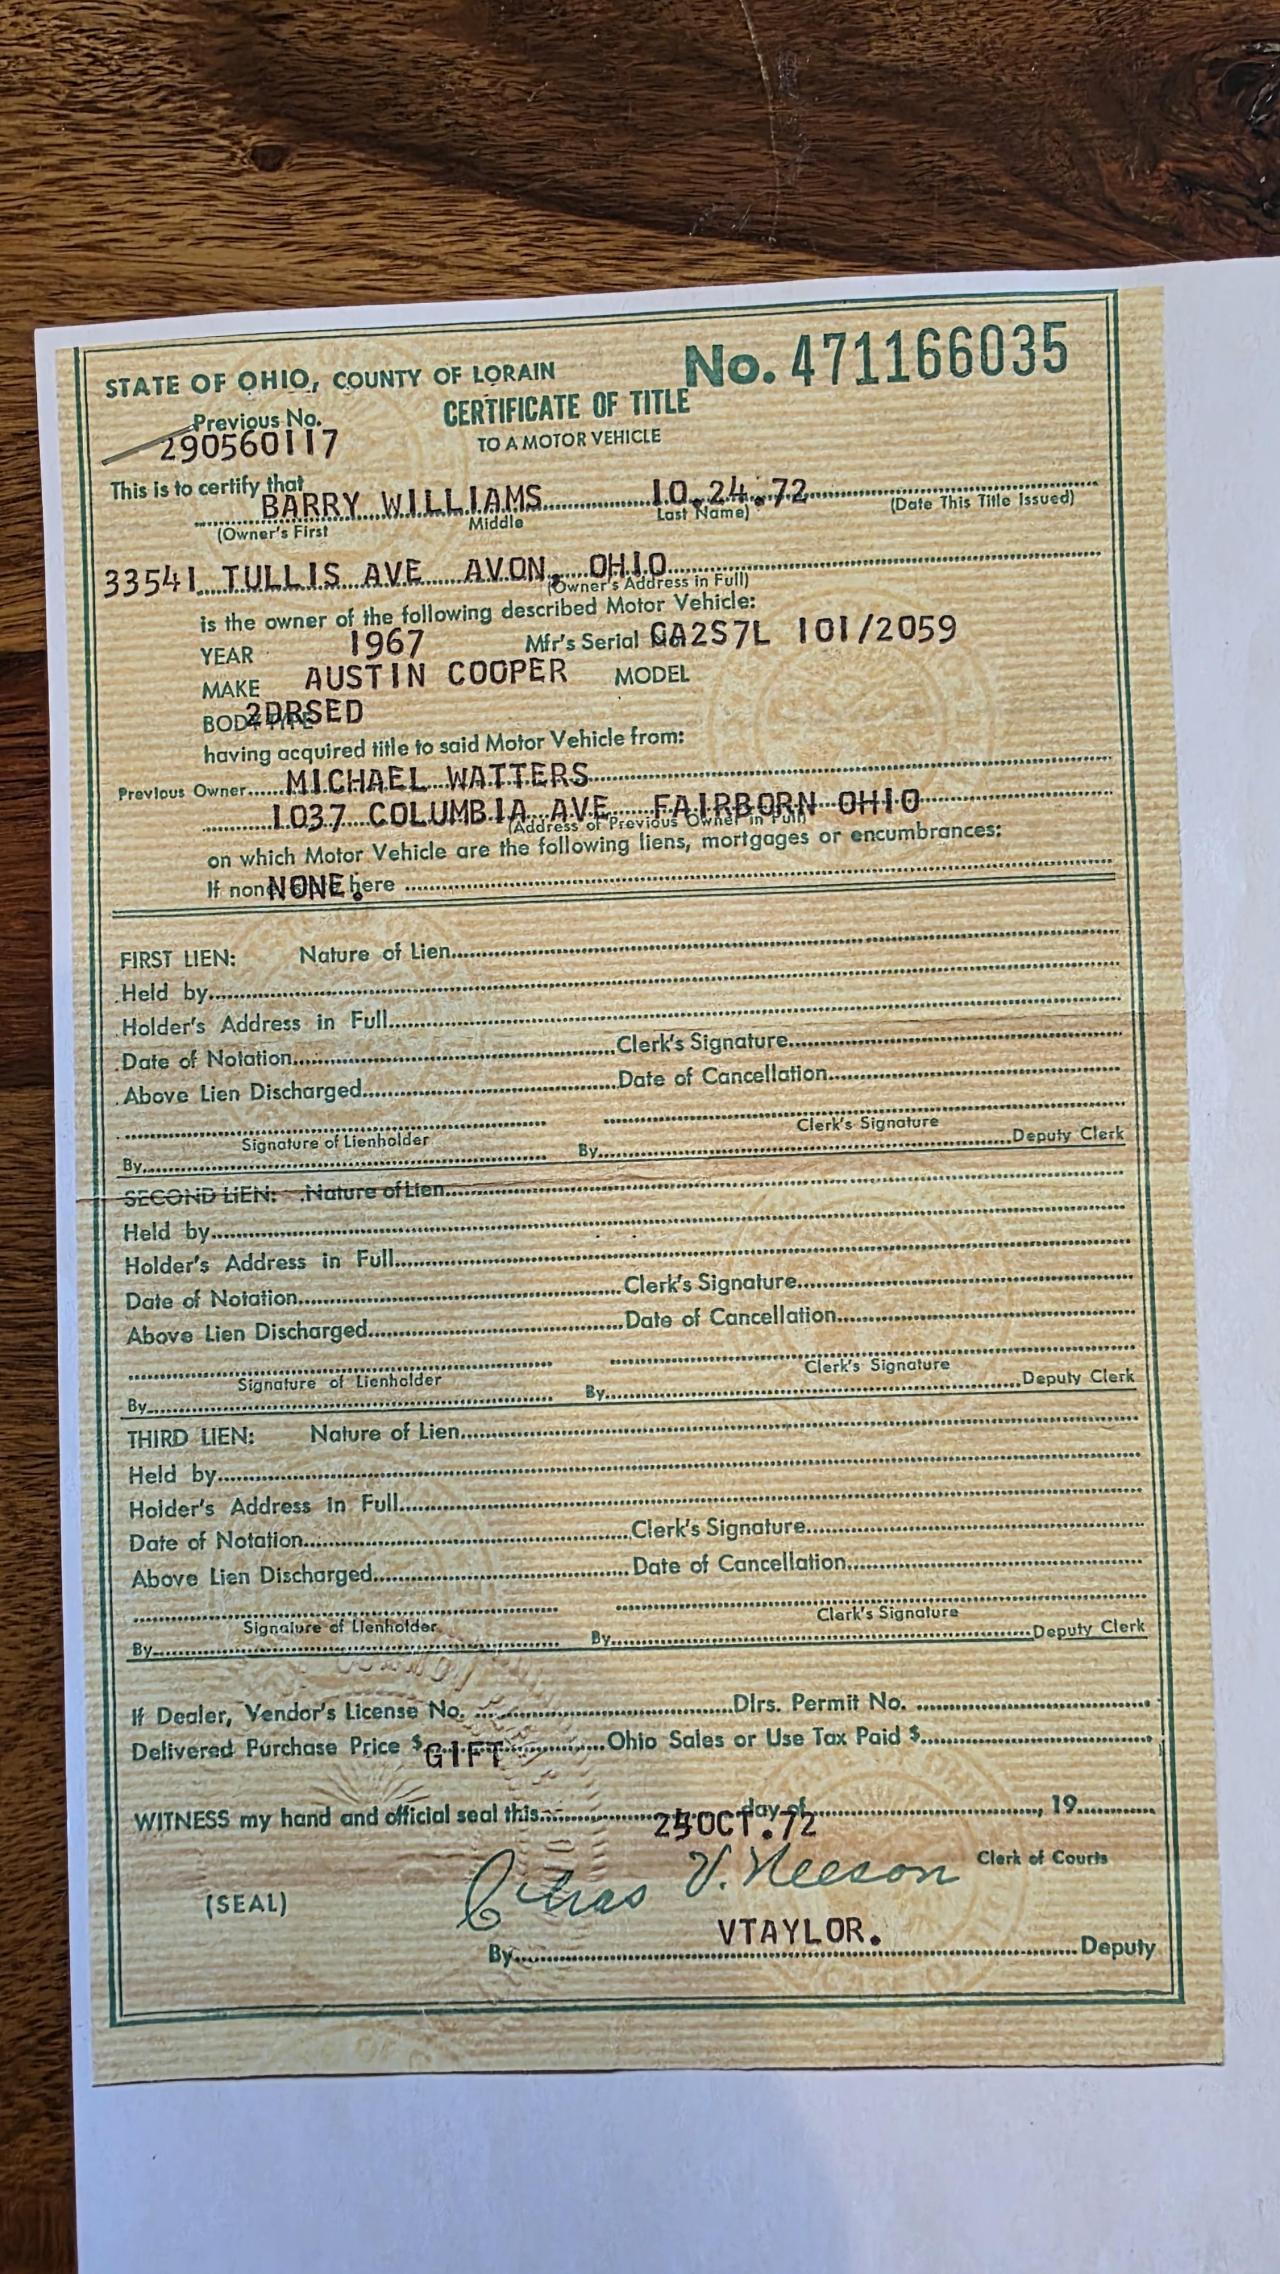 STATE OF OHIO, COUNTY OF LORAIN
No. 471166035
CERTIFICATE OF TITLE
TO A MOTOR VEHICLE
Previous No.
290560117
This is to certify that
BARRY WILLIAMS 10.24.72
(Owner's First Middle Last Name) (Date This Title Issued)
33541 TULLIS AVE AVON, OHIO
(Owner's Address in Full)
is the owner of the following described Motor Vehicle:
YEAR 1967 Mfr's Serial CA2S7L 101/2059
MAKE AUSTIN COOPER MODEL
BODY TYPE 2DRSED
having acquired title to said Motor Vehicle from:
Previous Owner MICHAEL WATTERS
1037 COLUMBIA AVE FAIRBORN OHIO
(Address of Previous Owner in Full)
on which Motor Vehicle are the following liens, mortgages or encumbrances:
If none NONE. here
FIRST LIEN: Nature of Lien
Held by
Holder's Address in Full
Date of Notation Clerk's Signature
Above Lien Discharged Date of Cancellation
Signature of Lienholder Clerk's Signature
By By Deputy Clerk
SECOND LIEN: Nature of Lien
Held by
Holder's Address in Full
Date of Notation Clerk's Signature
Above Lien Discharged Date of Cancellation
Signature of Lienholder Clerk's Signature
By By Deputy Clerk
THIRD LIEN: Nature of Lien
Held by
Holder's Address in Full
Date of Notation Clerk's Signature
Above Lien Discharged Date of Cancellation
Signature of Lienholder Clerk's Signature
By By Deputy Clerk
If Dealer, Vendor's License No. Dlrs. Permit No.
Delivered Purchase Price $ GIFT Ohio Sales or Use Tax Paid $
WITNESS my hand and official seal this day of , 19
OCT.72
V. Neeson Clerk of Courts
(SEAL)
VTAYLOR.
By Deputy